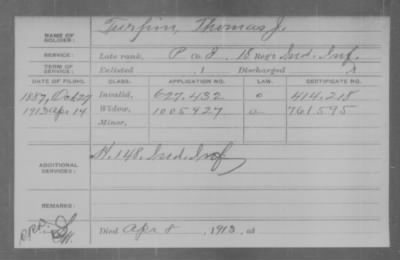 NAME OF SOLDIER: Turpin, Thomas J.
SERVICE: Late rank, P Co. I, 18 Reg't Ind. Inf.
TERM OF SERVICE: Enlisted , 1 Discharged , 1
DATE OF FILING. CLASS. APPLICATION NO. LAW. CERTIFICATE NO.
1887, Oct 27 Invalid, 627.432 414.218
1913 Apr 14 Widow, 1005927 761595
Minor,
ADDITIONAL SERVICES: H. 148. Ind. Inf.
REMARKS:
Died Apr 8 , 1913, at